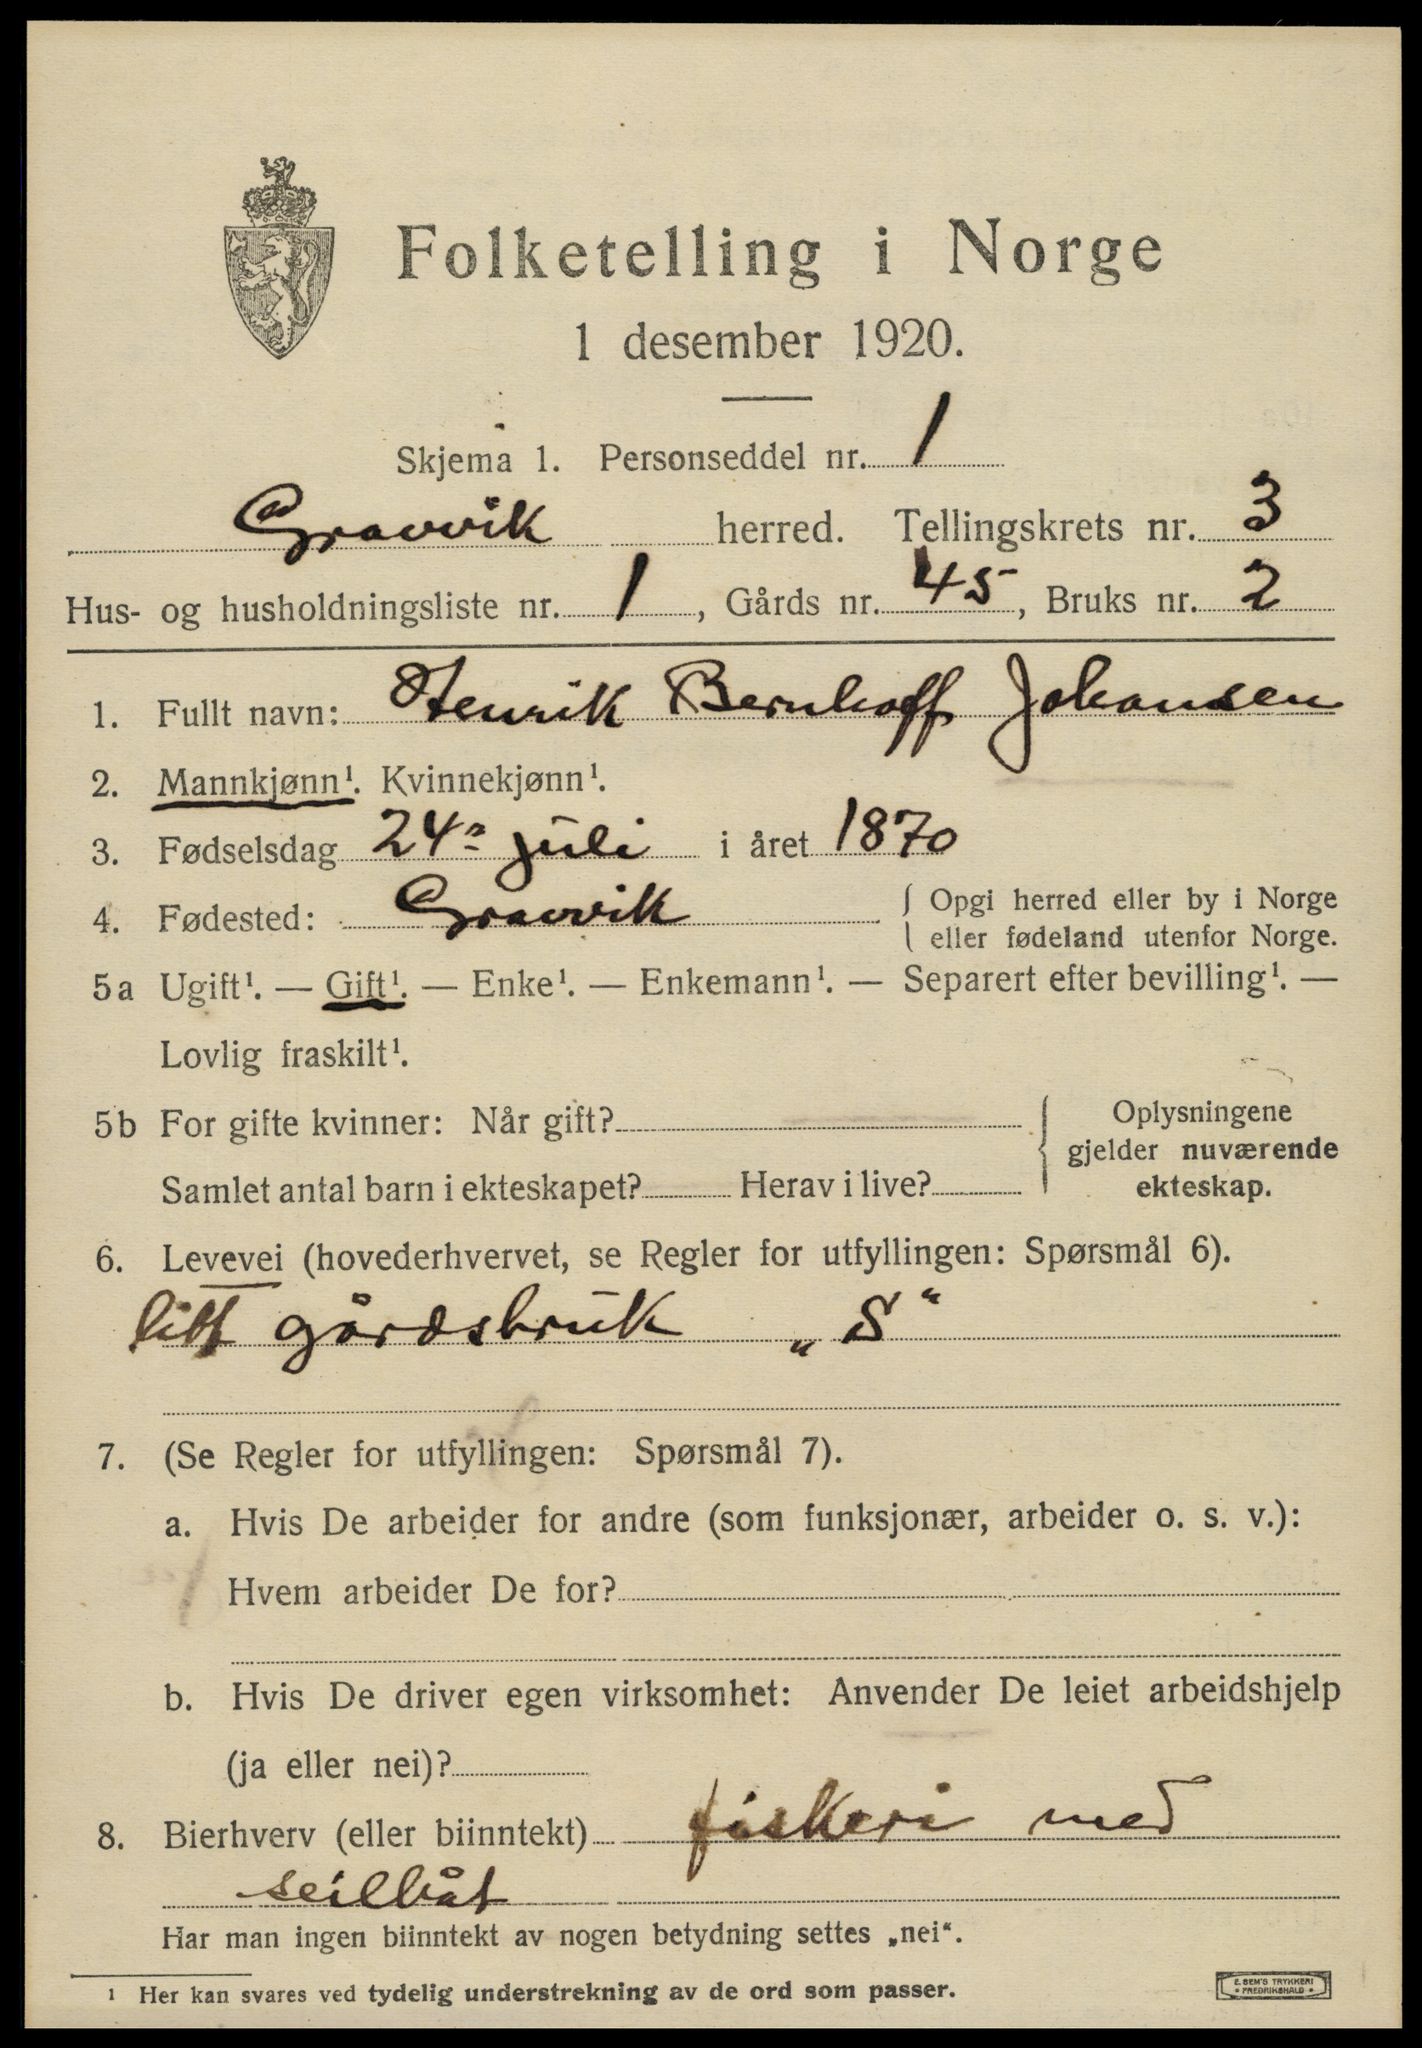 Folketelling i Norge
1 desember 1920.
Skjema 1. Personseddel nr. 1
Gravvik herred. Tellingskrets nr. 3
Hus- og husholdningsliste nr. 1, Gårds nr. 45, Bruks nr. 2
1. Fullt navn: Henrik Bernhoff Johansen
2. Mannkjønn¹. Kvinnekjønn¹.
3. Fødselsdag 24de juli i året 1870
4. Fødested: Gravvik { Opgi herred eller by i Norge
eller fødeland utenfor Norge.
5a Ugift¹. — Gift¹. — Enke¹. — Enkemann¹. — Separert efter bevilling¹. —
Lovlig fraskilt¹.
5b For gifte kvinner: Når gift? { Oplysningene
gjelder nuværende
Samlet antal barn i ekteskapet? Herav i live? ekteskap.
6. Levevei (hovederhvervet, se Regler for utfyllingen: Spørsmål 6).
litt gårdsbruk „S“
7. (Se Regler for utfyllingen: Spørsmål 7).
a. Hvis De arbeider for andre (som funksjonær, arbeider o. s. v.):
Hvem arbeider De for?
b. Hvis De driver egen virksomhet: Anvender De leiet arbeidshjelp
(ja eller nei)?
8. Bierhverv (eller biinntekt) fiskeri med
seilbåt
Har man ingen biinntekt av nogen betydning settes „nei“.
¹ Her kan svares ved tydelig understrekning av de ord som passer.
E. SEM'S TRYKKERI
• FREDRIKSHALD •